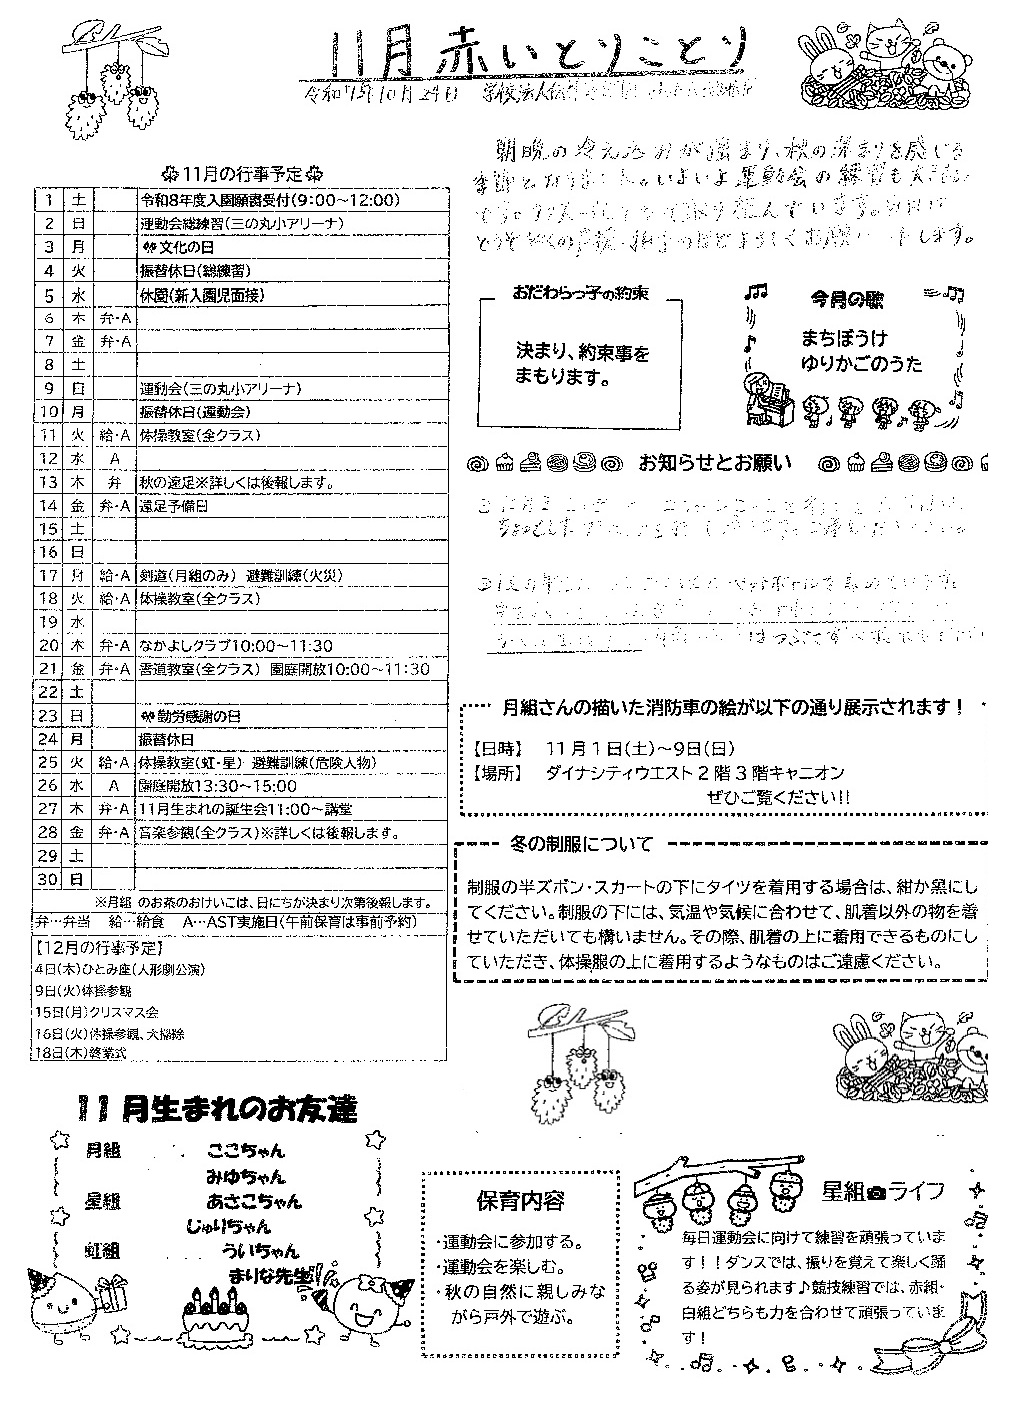 11月赤いとりことり
令和7年10月29日 学校法人
朝晩の冷え込みが深まり、秋の深まりを感じる
季節となりました。いよいよ運動会の練習も
張り組んでいます。当日は
どうぞ多くの声援・拍手のほどよろしくお願いいたします。
11月の行事予定
1 土 令和8年度入園願書受付(9:00~12:00)
2 日 運動会総練習(三の丸小アリーナ)
3 月 文化の日
4 火 振替休日(総練習)
5 水 休園(新入園児面接)
6 木 弁・A
7 金 弁・A
8 土
9 日 運動会(三の丸小アリーナ)
10 月 振替休日(運動会)
11 火 給・A 体操教室(全クラス)
12 水 A
13 木 弁 秋の遠足※詳しくは後報します。
14 金 弁・A 遠足予備日
15 土
16 日
17 月 給・A 剣道(月組のみ) 避難訓練(火災)
18 火 給・A 体操教室(全クラス)
19 水
20 木 弁・A なかよしクラブ10:00~11:30
21 金 弁・A 書道教室(全クラス) 園庭開放10:00~11:30
22 土
23 日 勤労感謝の日
24 月 振替休日
25 火 給・A 体操教室(虹・星) 避難訓練(危険人物)
26 水 A 園庭開放13:30~15:00
27 木 弁・A 11月生まれの誕生会11:00~講堂
28 金 弁・A 音楽参観(全クラス)※詳しくは後報します。
29 土
30 日
※月組 のお茶のおけいこは、日にちが決まり次第後報します。
弁…弁当 給…給食 A…AST実施日(午前保育は事前予約)
【12月の行事予定】
4日(木)ひとみ座(人形劇公演)
9日(火)体操参観
15日(月)クリスマス会
16日(火)体操参観、大掃除
18日(木)終業式
おだわらっ子の約束
決まり、約束事を
まもります。
今月の歌
まちぼうけ
ゆりかごのうた
お知らせとお願い
月組さんの描いた消防車の絵が以下の通り展示されます!
【日時】 11月1日(土)~9日(日)
【場所】 ダイナシティウエスト2階3階キャニオン
ぜひご覧ください!!
冬の制服について
制服の半ズボン・スカートの下にタイツを着用する場合は、紺か黒にし
てください。制服の下には、気温や気候に合わせて、肌着以外の物を着
せていただいても構いません。その際、肌着の上に着用できるものにし
ていただき、体操服の上に着用するようなものはご遠慮ください。
11月生まれのお友達
月組 ここちゃん
みゆちゃん
星組 あさこちゃん
じゅりちゃん
虹組 ういちゃん
まりな先生!!
保育内容
・運動会に参加する。
・運動会を楽しむ。
・秋の自然に親しみな
がら戸外で遊ぶ。
星組ライフ
毎日運動会に向けて練習を頑張っていま
す!!ダンスでは、振りを覚えて楽しく踊
る姿が見られます♪競技練習では、赤組・
白組どちらも力を合わせて頑張っていま
す!